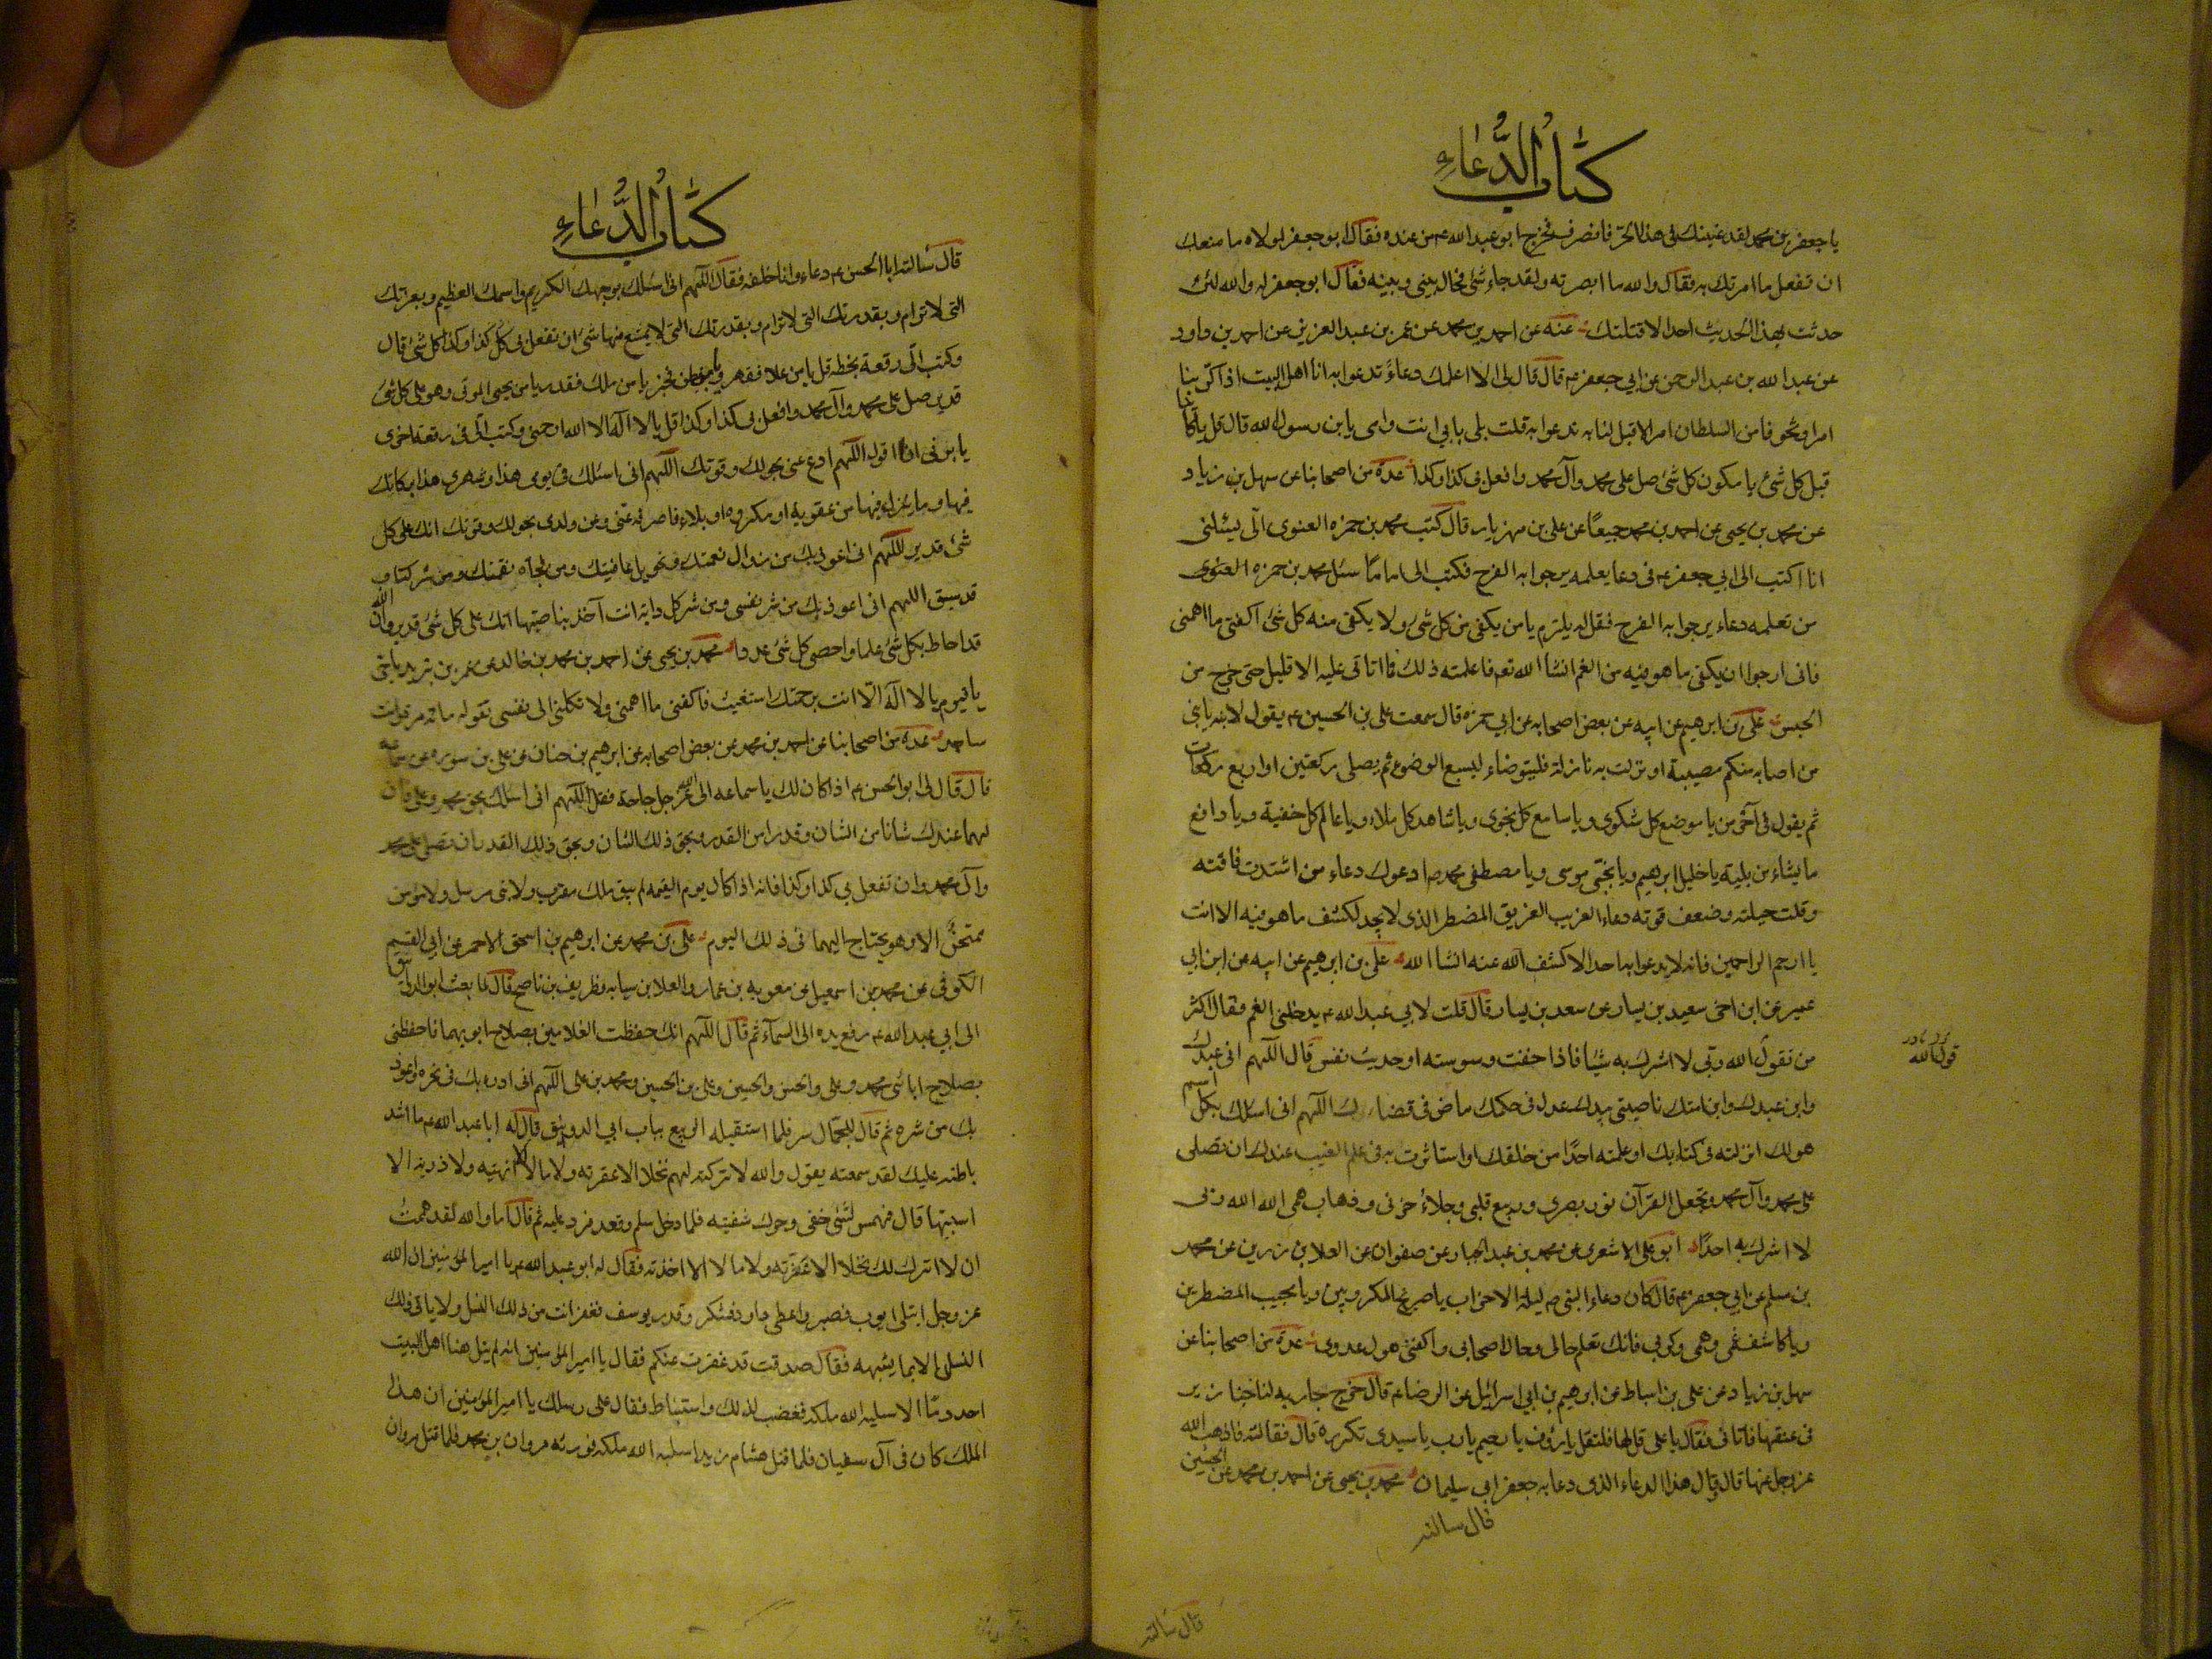 كتاب الدعاء
يا جعفر بن محمد لقد عنيتك في هذا الحر فانصرف فخرج ابو عبد الله ع من عنده فقال ابو جعفر لمولاه ما منعك
ان تفعل ما امرتك به فقال والله ما ابصرته ولقد جاء شئ فحال بيني وبينه فقال ابو جعفر له والله لئن
حدثت بهذا الحديث احدا لاقتلنك عنه عن احمد بن محمد عن عمر بن عبد العزيز عن احمد بن داود
عن عبد الله بن عبد الرحمن عن ابي جعفر ع قال قال لي الا اعلمك دعاء تدعوا به انا اهل البيت اذا كربنا
امر وتخوفنا من السلطان امرا لا قبل لنا به ندعوا به قلت بلى بابي انت وامي يا بن رسول الله قال قل يا كائنا
قبل كل شئ يا مكون كل شئ صل على محمد وآل محمد وافعل بي كذا وكذا عدة من اصحابنا عن سهل بن زياد
عن محمد بن يحيى عن احمد بن محمد جميعا عن علي بن مهزيار قال كتب محمد بن حمزه العنوى الى يسئلني
انا اكتب الى ابي جعفر ع في دعا يعلمه يرجوا به الفرج فكتب الى اما ما سئل محمد بن حمزه العنوى
من تعلمه دعاء يرجوا به الفرج فقل له يلزم يا من يكفي من كل شئ ولا يكفى منه كل شئ اكفنى ما اهمنى
فاني ارجوا ان يكفى ما هو فيه من الغم انشا الله تعم فاعلمته ذلك فما اتى عليه الا قليل حتى خرج من
الحبس علي بن ابرهيم عن ابيه عن بعض اصحابه عن ابي حمزه قال سمعت علي بن الحسين ع يقول لابنه يا بني
من اصابه منكم مصيبة او نزلت به نازلة فليتوضاء ليسبغ الوضوء ثم يصلى ركعتين او اربع ركعات
ثم يقول في آخرهن يا موضع كل شكوى ويا سامع كل نجوى ويا شاهد كل ملاء ويا عالم كل خفية ويا دافع
ما يشاء من بلية يا خليل ابرهيم ويا نجي موسى ويا مصطفى محمد ص ادعوك دعاء من اشتدت فاقته
وقلت حيلته وضعف قوته دعاء الغريب الغريق المضطر الذي لا يجد لكشف ما هو فيه الا انت
يا ارحم الراحمين فانه لا يدعوا به احد الا كشف الله عنه انشا الله علي بن ابرهيم عن ابيه عن ابن ابي
عمير عن ابن اخي سعيد بن يسار عن سعد بن يسار قال قلت لابي عبد الله ع يدخلني الغم فقال اكثر
من تقول الله ربي لا اشرك به شيئا فاذا خفت وسوسته او حديث نفس قال اللهم اني عبدك
وابن عبدك وابن امتك ناصيتي بيدك عدل في حكمك ماض في قضاؤك اللهم اني اسئلك بكل اسم
هو لك انزلته في كتابك او علمته احدا من خلقك او استاثرت به في علم الغيب عندك ان تصلى
على محمد وآل محمد وتجعل القرآن نور بصرى وربيع قلبي وجلاء حزنى وذهاب همى الله الله ربى
لا اشرك به احدا ابو علي الاشعري عن محمد بن عبد الجبار عن صفوان عن العلا بن رزين عن محمد
بن مسلم عن ابي جعفر ع قال كان دعاء النبي ص ليلة الاحزاب يا صريخ المكروبين ويا مجيب المضطرين
ويا كاشف غمي وهمي وكربي فانك تعلم حالي وحال اصحابي واكفني هول عدوى عدة من اصحابنا عن
سهل بن زياد عن علي بن اسباط عن ابرهيم بن ابي اسرائيل عن الرضا ع قال خرج بجاريه لنا خنازير
في عنقها فاتاني فقال يا علي قل لها فلتقل يا رؤف يا رحيم يا رب يا سيدي تكرره قال فقالته فاذهب الله
عز وجل عنها قال وقال هذا الدعاء الذي دعا به جعفر ابي سليمان محمد بن يحيى عن احمد بن محمد عن الحسين
قال سالته
قال سالته
قول الله
كتاب الدعاء
قال سالت ابا الحسن ع دعاء وانا خلفه فقال اللهم اني اسئلك بوجهك الكريم واسمك العظيم وبعزتك
التي لا ترام وبقدرتك التي لا ترام وبقدرتك التي لا يمتنع منها شئ ان تفعل بي كل كذا وكذا كل شئ قال
وكتب الى رقعة بخطه قل يا من علا فقهر ويا من بطن فخبر يا من ملك فقدر يا من يحيى الموتى وهو على كل شئ
قدير صل على محمد وآل محمد وافعل بي كذا وكذا قل يا لا اله الا الله ارحمني وكتب الى في رقعة اخرى
يا مرني ان اقول اللهم ادع عني بحولك وقوتك اللهم اني اسئلك في يومى هذا وشهري هذا بركاتك
فيها وما ينزل فيها من عقوبه او مكروه او بلاء فاصرفه عني وعن ولدى بحولك وقوتك انك على كل
شئ قدير اللهم اني اعوذ بك من زوال نعمتك وتحويل عافيتك ومن فجأه نقمتك ومن شر كتاب
قد سبق اللهم اني اعوذ بك من شر نفسى ومن شر كل دابة انت آخذ بناصيتها انك على كل شئ قدير وان الله
قد احاط بكل شئ علما واحصى كل شئ عددا محمد بن يحيى عن احمد بن محمد بن خالد عن عمر بن يزيد يا حي
يا قيوم يا لا اله الا انت برحمتك استغيث فاكفني ما اهمني ولا تكلني الى نفسى تقوله مائة مره وانت
ساجد عدة من اصحابنا عن احمد بن محمد عن بعض اصحابه عن ابرهيم بن حنان عن علي بن سوره عن سماعة
قال قال لي ابو الحسن ع اذا كان لك يا سماعه الى الله عز وجل حاجة فقل اللهم اني اسئلك بحق محمد وعلي فان
لهما عندك شانا من الشان وقدرا من القدر وبحق ذلك الشان وبحق ذلك القدر ان تصلى على محمد
وآل محمد وان تفعل بي كذا وكذا فانه اذا كان يوم القيمه لم يبق ملك مقرب ولا نبي مرسل ولا مؤمن
ممتحن الا وهو يحتاج اليهما في ذلك اليوم علي بن محمد عن ابرهيم بن اسحق الاحمر عن ابي القسيم
الكوفي عن محمد بن اسمعيل عن معويه بن عمار والعلا بن سيابه وظريف بن ناصح قال لما بعث ابو الدوانيق
الى ابي عبد الله ع رفع يده الى السماء ثم قال اللهم انك حفظت الغلامين بصلاح ابويهما فاحفظني
بصلاح ابائي محمد وعلي والحسن والحسين وعلي بن الحسين ومحمد بن علي اللهم اني ادرء بك في نحره واعوذ
بك من شره ثم قال للجمال سر فلما استقبله الربيع بباب ابي الدوانيق قال له ابا عبد الله ع ما اشد
باطنه عليك لقد سمعته يقول والله لا تركت لهم نخلا الا عقرته ولا مالا الا نهبته ولا ذرية الا
اسبيتها قال فهمس لشئ خفي وحرك شفتيه فلما دخل سلم وقعد فرد عليه ثم قال اما والله لقد هممت
ان لا اترك لك نخلا الا عقرته ولا مالا الا اخذته فقال له ابو عبد الله ع يا امير المؤمنين ان الله
عز وجل ابتلى ايوب فصبر واعطى داود فشكر وقدر يوسف فغفر انت من ذلك النسل ولا ياتي ذلك
النسل الا بما يشبهه فقال صدقت قد غفرت عنكم فقال يا امير المؤمنين انه لم ينل هنا اهل البيت
احد دما الا سلبه الله ملكه فغضب لذلك واستشاط فقال على رسلك يا امير المؤمنين ان هذا
الملك كان في آل سفيان فلما قتل هشام زيدا سلبه الله ملكه فورثه مروان بن محمد فلما قتل مروان